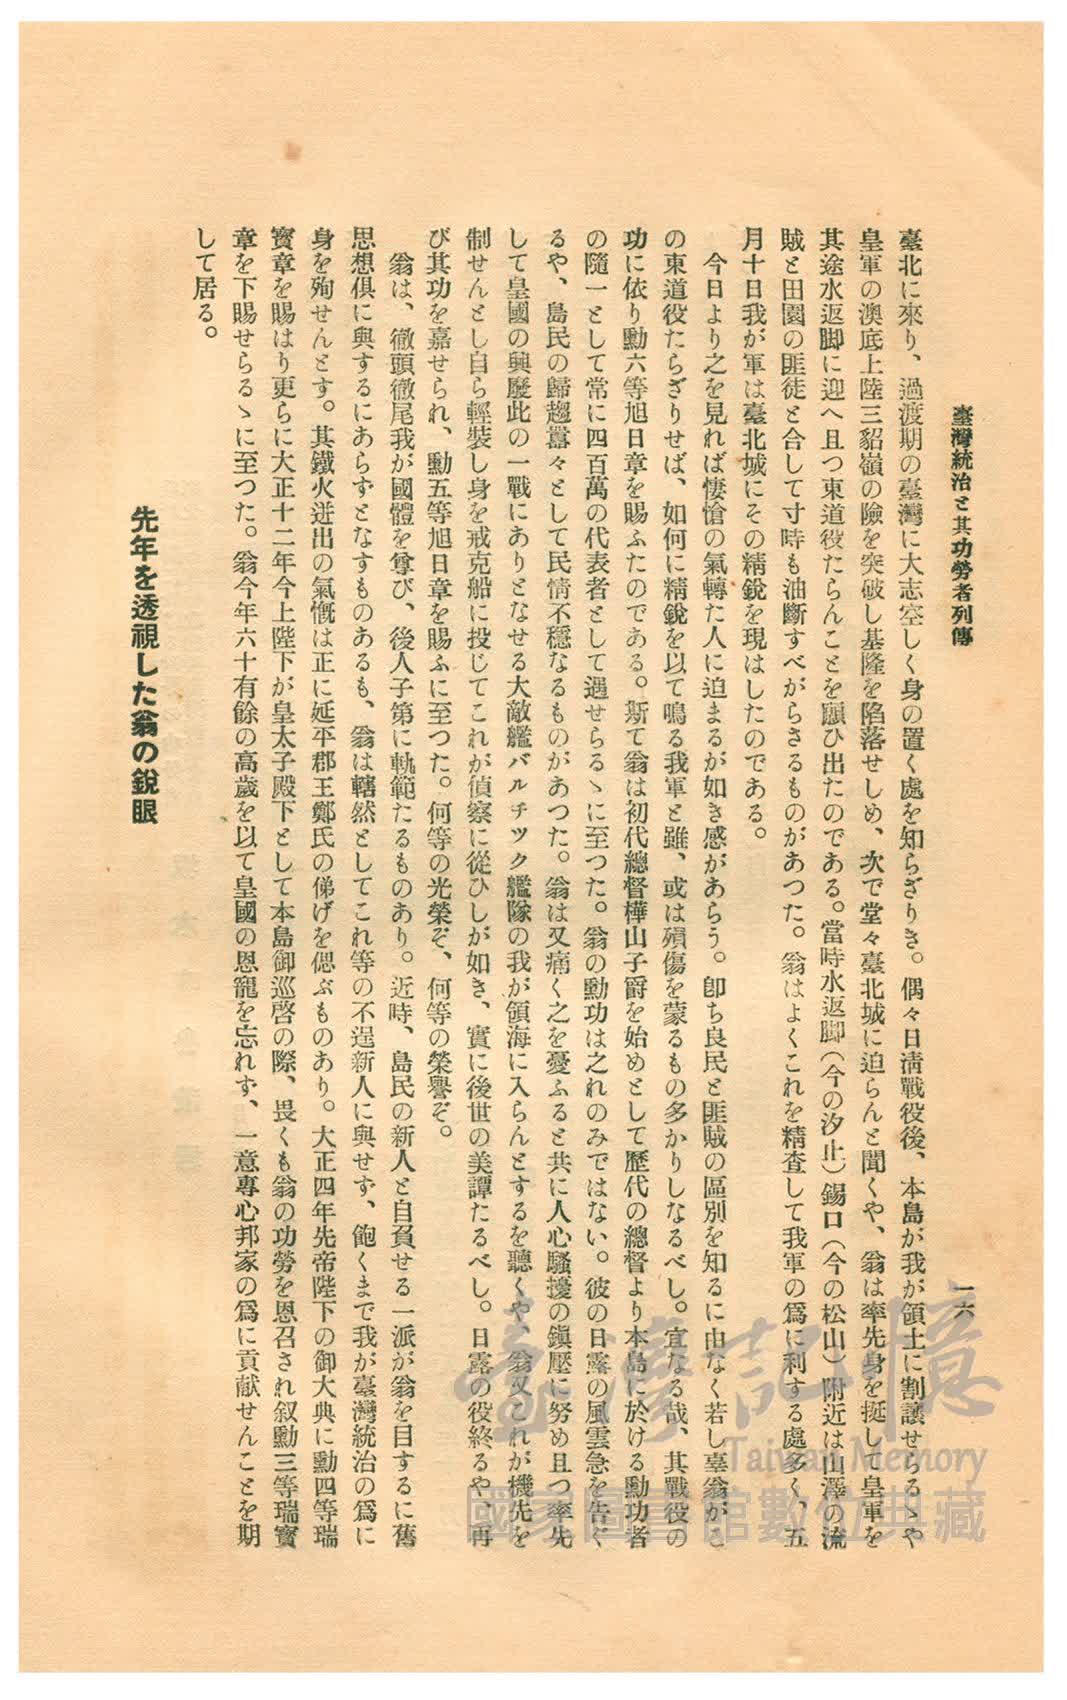 臺灣統治と其功勞者列傳
一六
臺北に來り、過渡期の臺灣に大志空しく身の置く處を知らざりき。偶々日淸戰役後、本島が我が領土に割讓せらるゝや
皇軍の澳底上陸三貂嶺の險を突破し基隆を陷落せしめ、次で堂々臺北城に迫らんと聞くや、翁は率先身を挺して皇軍を
其途水返脚に迎へ且つ東道役たらんことを願ひ出たのである。當時水返脚(今の汐止)錫口(今の松山)附近は山澤の流
賊と田園の匪徒と合して寸時も油斷すべがらさるものがあつた。翁はよくこれを精査して我軍の爲に利する處多く、五
月十日我が軍は臺北城にその精銳を現はしたのである。
今日より之を見れば悽愴の氣轉た人に迫まるが如き感があらう。卽ち良民と匪賊の區別を知るに由なく若し辜翁がこ
の東道役たらざりせば、如何に精銳を以て鳴る我軍と雖、或は殞傷を蒙るもの多かりしなるべし。宜なる哉、其戰役の
功に依り勳六等旭日章を賜ふたのである。斯て翁は初代總督樺山子爵を始めとして歷代の總督より本島に於ける勳功者
の隨一として常に四百萬の代表者として遇せらるゝに至つた。翁の勳功は之れのみではない。彼の日露の風雲急を吿ぐ
るや、島民の歸趨囂々として民情不穩なるものがあつた。翁は又痛く之を憂ふると共に人心騷擾の鎭壓に努め且つ率先
して皇國の興廢此の一戰にありとなせる大敵艦バルチツク艦隊の我が領海に入らんとするを聽くや、翁又これが機先を
制せんとし自ら輕裝し身を戎克船に投じてこれが偵察に從ひしが如き、實に後世の美譚たるべし。日露の役終るや、再
び其功を嘉せられ、勳五等旭日章を賜ふに至つた。何等の光榮ぞ、何等の榮譽ぞ。
翁は、徹頭徹尾我が國體を尊び、後人子第に軌範たるものあり。近時、島民の新人と自負せる一派が翁を目するに舊
思想倶に與するにあらずとなすものあるも、翁は轄然としてこれ等の不逞新人に與せず、飽くまで我が臺灣統治の爲に
身を殉せんとす。其鐵火迸出の氣慨は正に延平郡王鄭氏の俤げを偲ぶものあり。大正四年先帝陛下の御大典に勳四等瑞
寶章を賜はり更らに大正十二年今上陛下が皇太子殿下として本島御巡啓の際、畏くも翁の功勞を恩召され叙勳三等瑞寶
章を下賜せらるゝに至つた。翁今年六十有餘の高歲を以て皇國の恩寵を忘れず、一意專心邦家の爲に貢献せんことを期
して居る。
先年を透視した翁の銳眼
臺灣記憶
Taiwan Memory
國家圖書館數位典藏